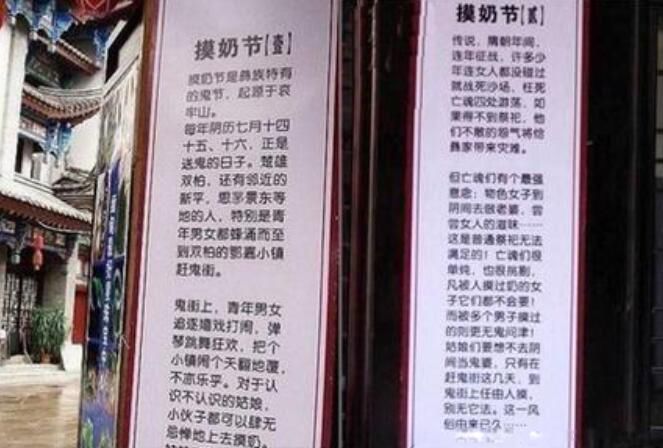 摸奶节[壹]
摸奶节是彝族特有
的鬼节，起源于哀
牢山。
每年阴历七月十四
十五、十六，正是
送鬼的日子。楚雄
双柏，还有邻近的
新平，思茅景东等
地的人，特别是青
年男女都蜂涌而至
到双柏的鄂嘉小镇
赶鬼街。
鬼街上，青年男女
追逐嬉戏打闹，弹
琴跳舞狂欢，把个
小镇闹个天翻地覆，
不亦乐乎。对于认
识不认识的姑娘，
小伙子都可以肆无
忌惮地上去摸奶。
摸奶节[贰]
传说，隋朝年间，
连年征战，许多少
年连女人都没碰过
就战死沙场，枉死
亡魂四处游荡，如
果得不到祭祀，他
们不散的怨气将给
彝家带来灾难。
但亡魂们有个最强
意念：物色女子到
阴间去做老婆，尝
尝女人的滋味……
这是普通祭祀无法
满足的！亡魂们很
单纯，也很挑剔，
凡被人摸过奶的女
子它们都不会要！
而被多个男子摸过
的则更无鬼问津！
姑娘们要想不去阴
间当鬼婆，只有在
赶鬼街这几天，到
鬼街上任由人摸，
别无它法。这一风
俗由来已久……